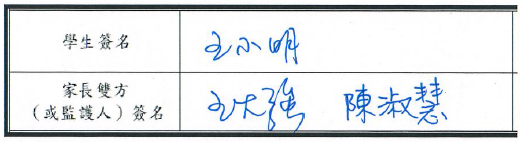 學生簽名 王小明
家長雙方
(或監護人)簽名 王大強 陳淑慧